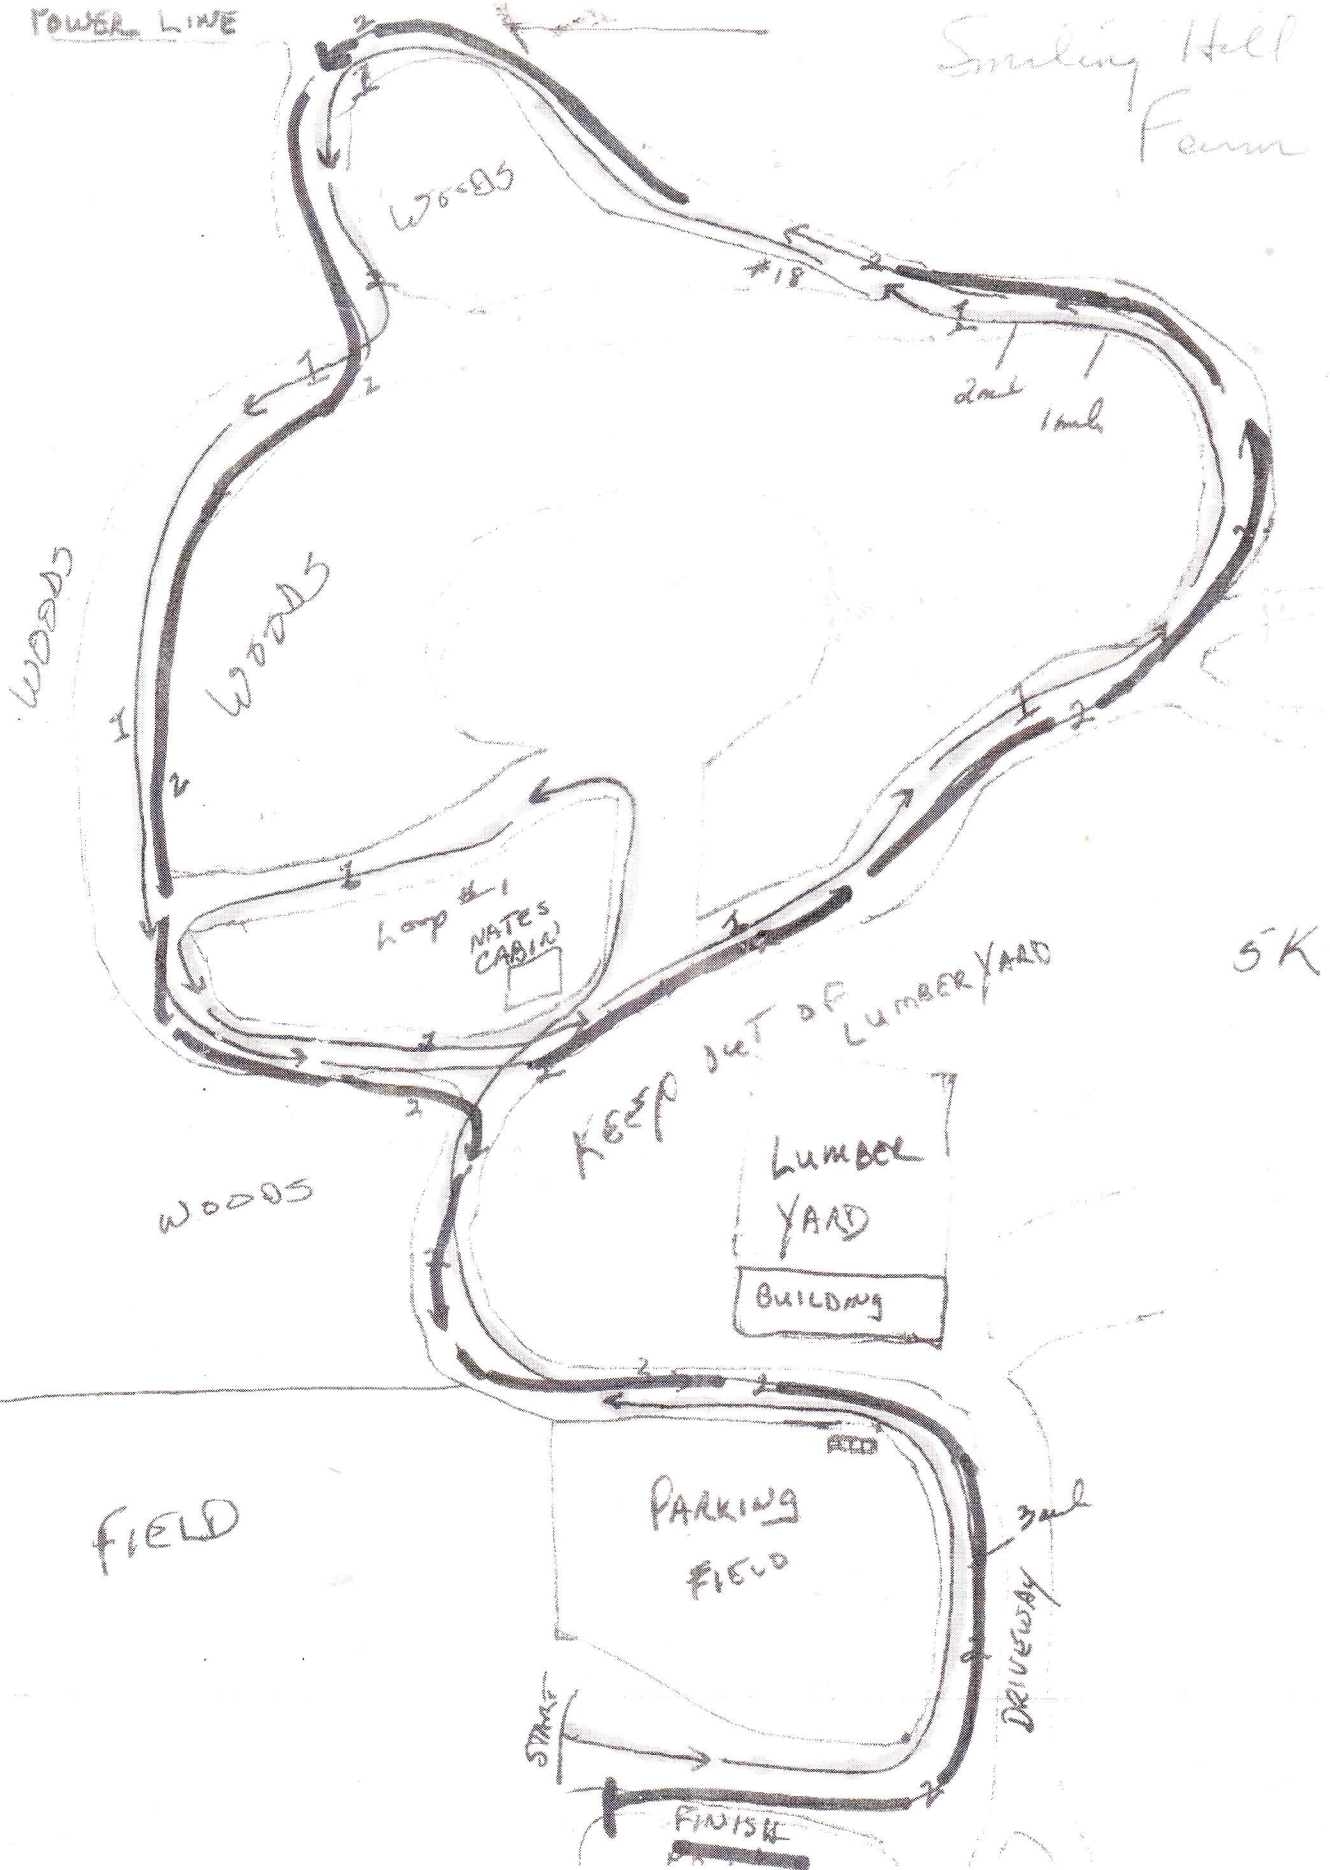 POWER LINE
Smiling Hill
Farm
2
1
WOODS
#18
2
1
1
1
2
1
2 mile
1 mile
2
WOODS
WOODS
1
2
1
2
1
Loop #1
NATES
CABIN
1
2
1
2
2
KEEP OUT OF
LUMBER YARD
5K
WOODS
LUMBER
YARD
BUILDING
2
2
FIELD
PARKING
FIELD
3 mile
DRIVEWAY
START
2
FINISH